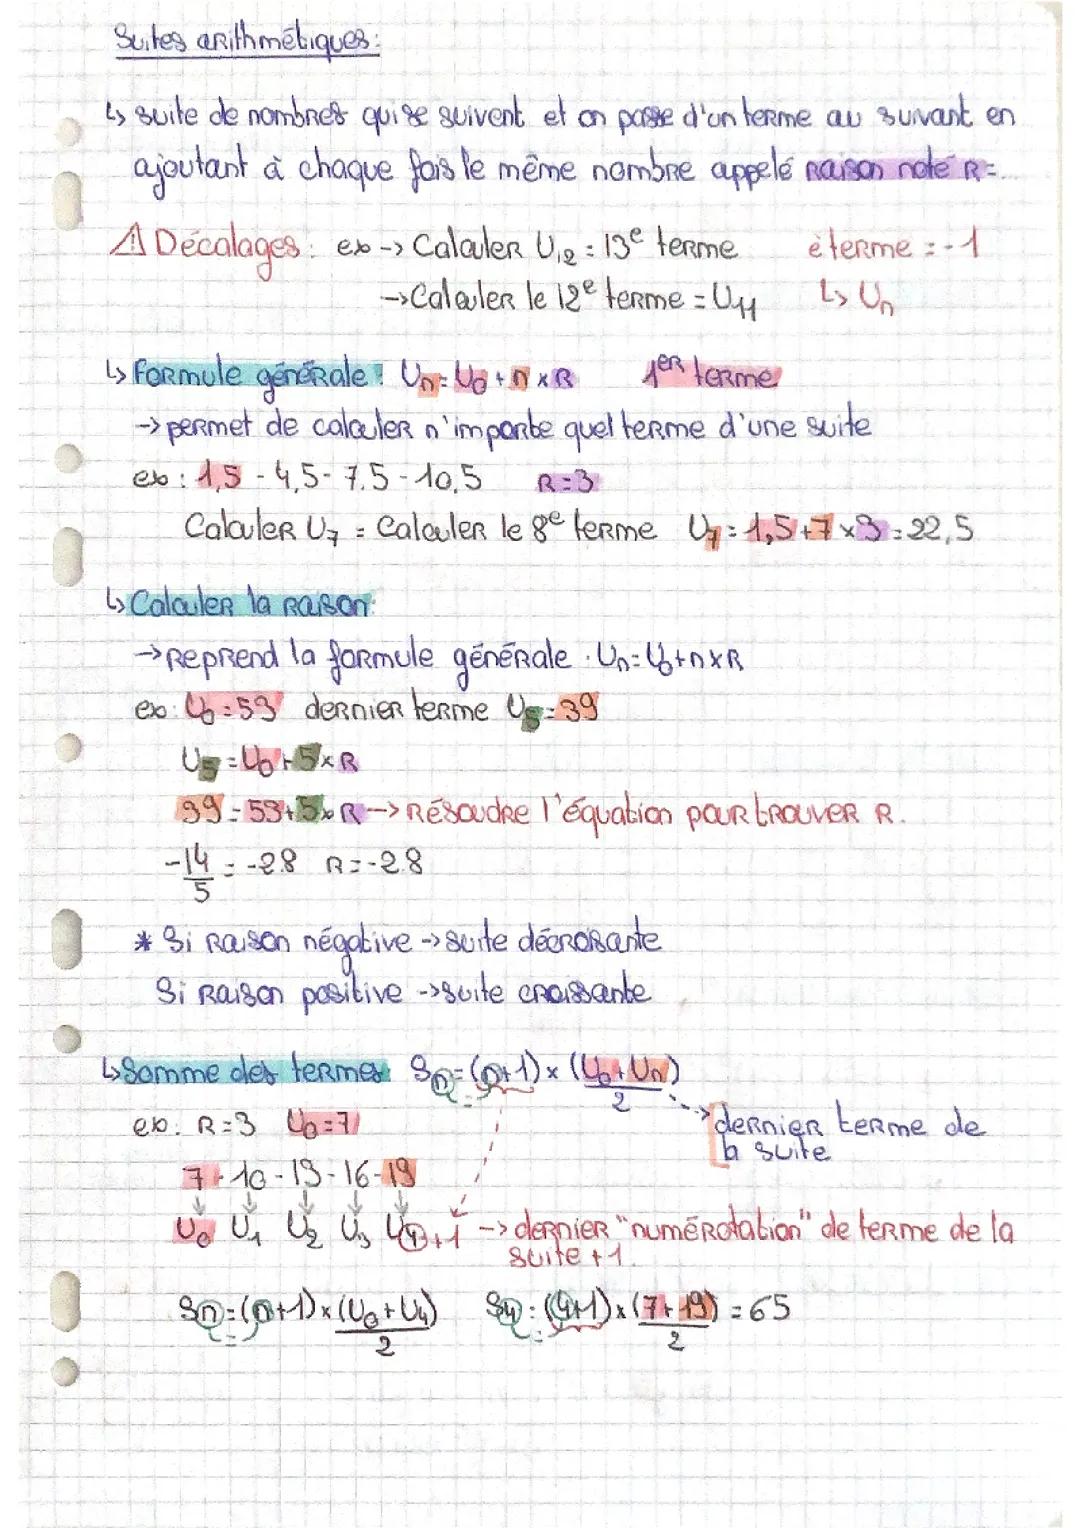 Suites arithmétiques:
↳ suite de nombres qui se suivent et on passe d'un terme au suivant en
ajoutant à chaque fois le même nombre appelé raison noté R=...
⚠ Décalages: ex -> Calculer U₁₂ = 13e terme   è terme = -1
-> Calculer le 12e terme = U₁₁   ↳ Un
↳ Formule générale: Un = U0 + n × R   1er terme
-> permet de calculer n'importe quel terme d'une suite
ex: 1,5 - 4,5 - 7,5 - 10,5   R=3
Calculer U₇ = Calculer le 8e terme   U₇ = 1,5+7×3 = 22,5
↳ Calculer la raison:
-> Reprend la formule générale. Un = U0+n×R
ex: U0=53 dernier terme U5=39
U5 = U0+5×R
39 = 53+5×R -> Résoudre l'équation pour trouver R.
-14/5 = -2.8   R=-2.8
* Si raison négative -> suite décroissante
Si raison positive -> suite croissante
↳ Somme des termes Sn=(n+1)×(U0+Un)/2
-> dernier terme de la suite
ex. R=3 U0=7
7-10-13-16-19
U0 U1 U2 U3 U4+1 -> dernier "numérotation" de terme de la
suite +1.
Sn=(n+1)×(U0+U4)/2   S4=(4+1)×(7+19)/2 = 65